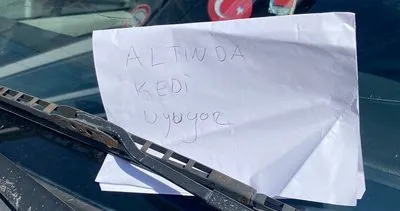 ALTINDA
KEDİ
uyuyor